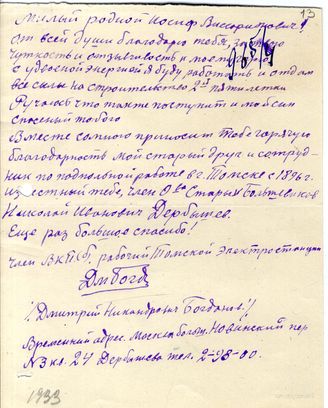 13
Милый родной Иосиф Виссарионович!
От всей души благодарю тебя, за твою
чуткость и отзывчивость и
с удвоенной энергией я буду работать и отдам
все силы на строительство 2й пятилетки
Ручаюсь что также поступит и мой сын
спасеный тобой
Вместе со мною приносит тебе горячую
благодарность мой старый друг и сотруд-
ник по подпольной работе в г. Томске с 1896 г.
известный тебе, член О-ва Старых Большевиков
Николай Иванович Дербышев.
Еще раз большое спасибо!
Член ВКП(б), рабочий Томской Электростанции
ДмБогд
/Дмитрий Никандрович Богданов/
Временный адрес. Москва Новинский пер
№3 кв. 24 Дербышева тел. 2-98-00.
1933